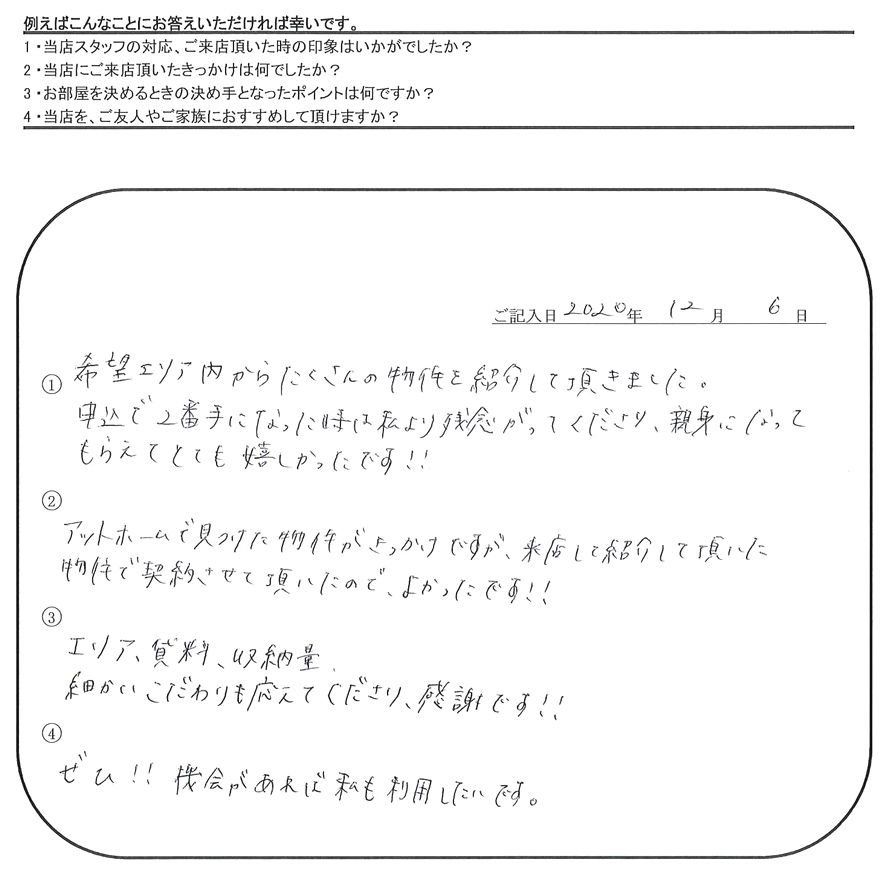 例えばこんなことにお答えいただければ幸いです。
1・当店スタッフの対応、ご来店頂いた時の印象はいかがでしたか？
2・当店にご来店頂いたきっかけは何でしたか？
3・お部屋を決めるときの決め手となったポイントは何ですか？
4・当店を、ご友人やご家族におすすめして頂けますか？
ご記入日 2020年 12月 6日
① 希望エリア内からたくさんの物件を紹介して頂きました。
申込で2番手になった時は私より残念がってくださり、親身になって
もらえてとても嬉しかったです!!
②
アットホームで見つけた物件がきっかけですが、来店して紹介して頂いた
物件で契約させて頂いたので、よかったです!!
③
エリア、賃料、収納量、
細かいこだわりも応えてくださり、感謝です!!
④
ぜひ!! 機会があれば私も利用したいです。